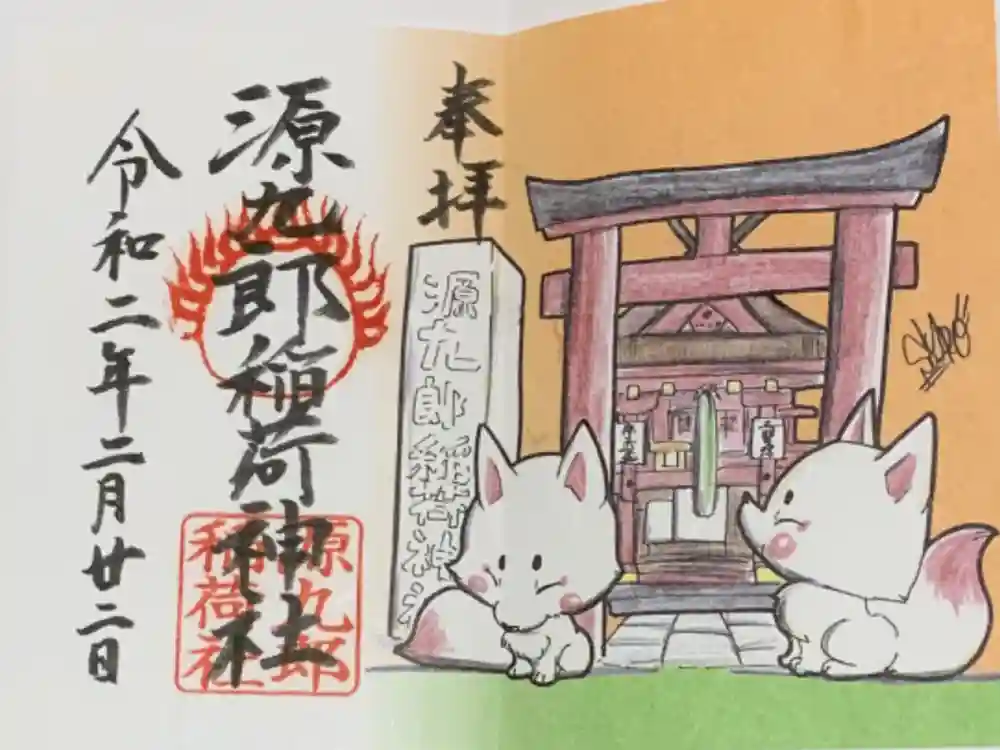 奉拝
源九郎稲荷神社
令和二年二月廿二日
源九郎稲荷神社
源九郎
稲荷社